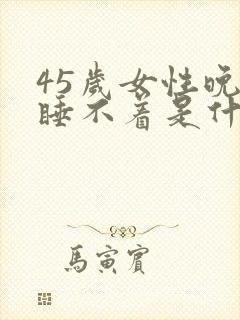 45歲女性晚
睡不着是什
馬寅賓